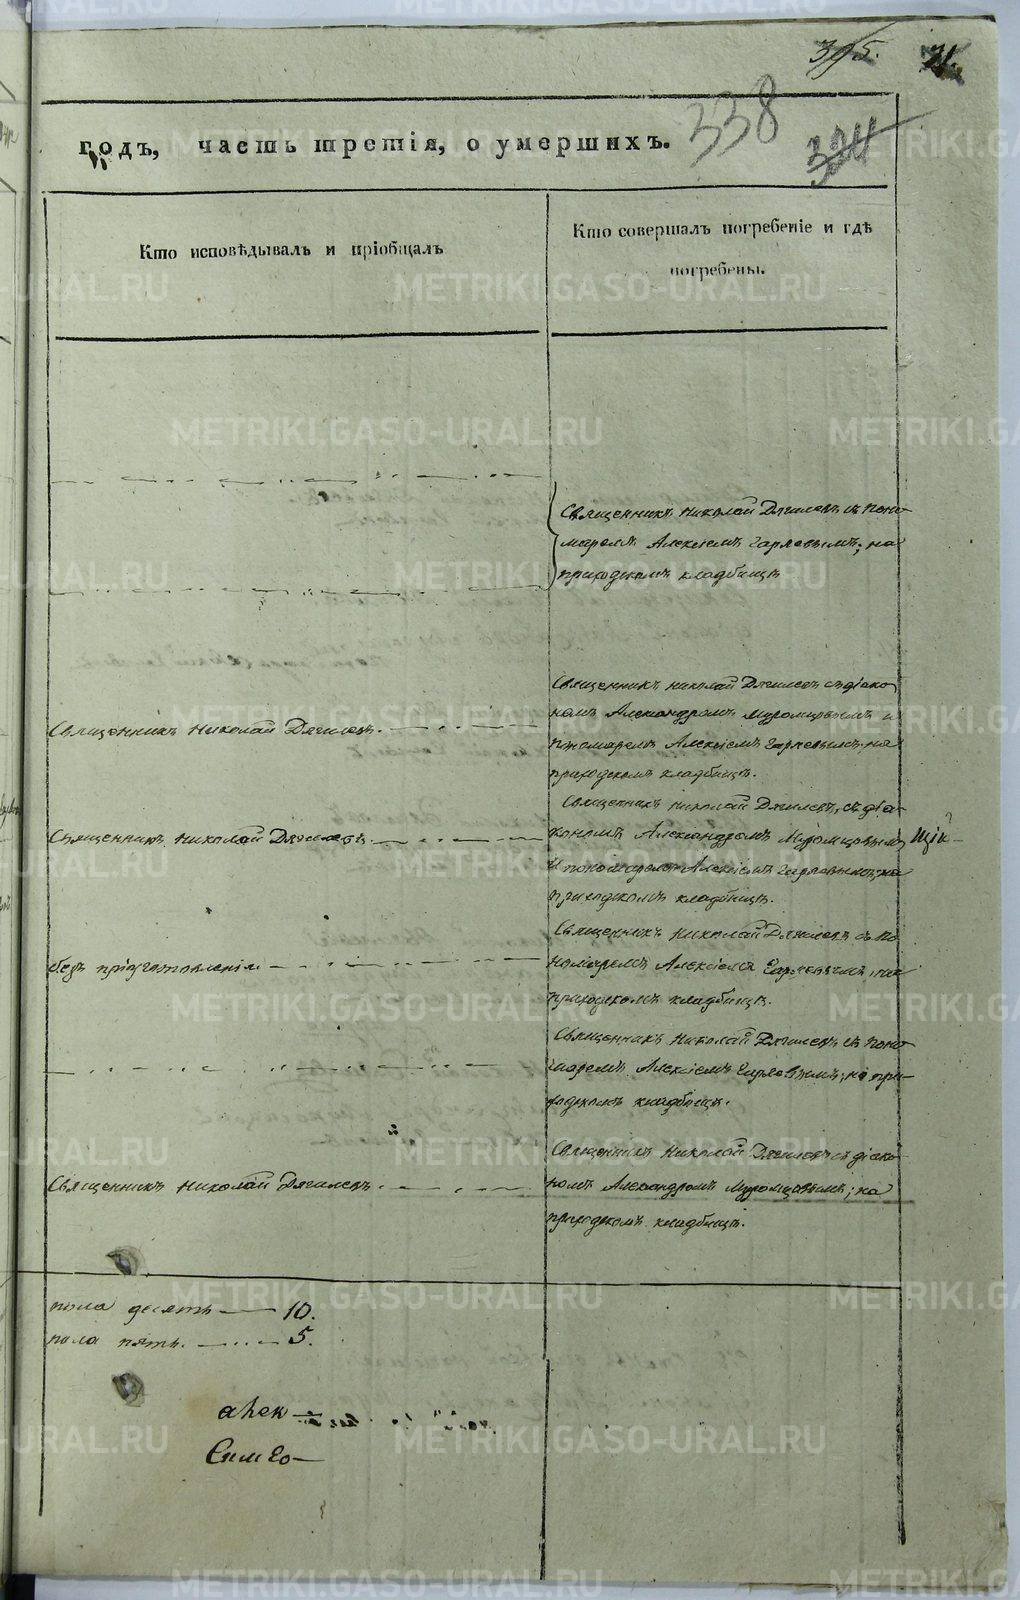 395.
338
324
годъ, часть третія, о умершихъ.
Кто исповѣдывалъ и пріобщалъ
Кто совершалъ погребеніе и гдѣ
погребены.
Священникъ Николай Дягилевъ съ поно-
маремъ Алексіемъ на
приходскомъ кладбищѣ
Священникъ Николай Дягилевъ.
Священникъ Николай Дягилевъ съ діако-
номъ Александромъ Муромцовымъ и
пономаремъ Алексіемъ на
приходскомъ кладбищѣ.
Священникъ Николай Дягилевъ.
Священникъ Николай Дягилевъ, съ діа-
кономъ Александромъ Муромцовымъ
и пономаремъ Алексіемъ на
приходскомъ кладбищѣ.
безъ пріуготовленія.
Священникъ Николай Дягилевъ съ по-
номаремъ Алексіемъ на
приходскомъ кладбищѣ.
Священникъ Николай Дягилевъ съ поно-
маремъ Алексіемъ на при-
ходскомъ кладбищѣ.
Священникъ Николай Дягилевъ.
Священникъ Николай Дягилевъ съ діако-
номъ Александромъ Муромцовымъ; на
приходскомъ кладбищѣ.
пола десять 10.
пола пять. 5.
METRIKI.GASO-URAL.RU